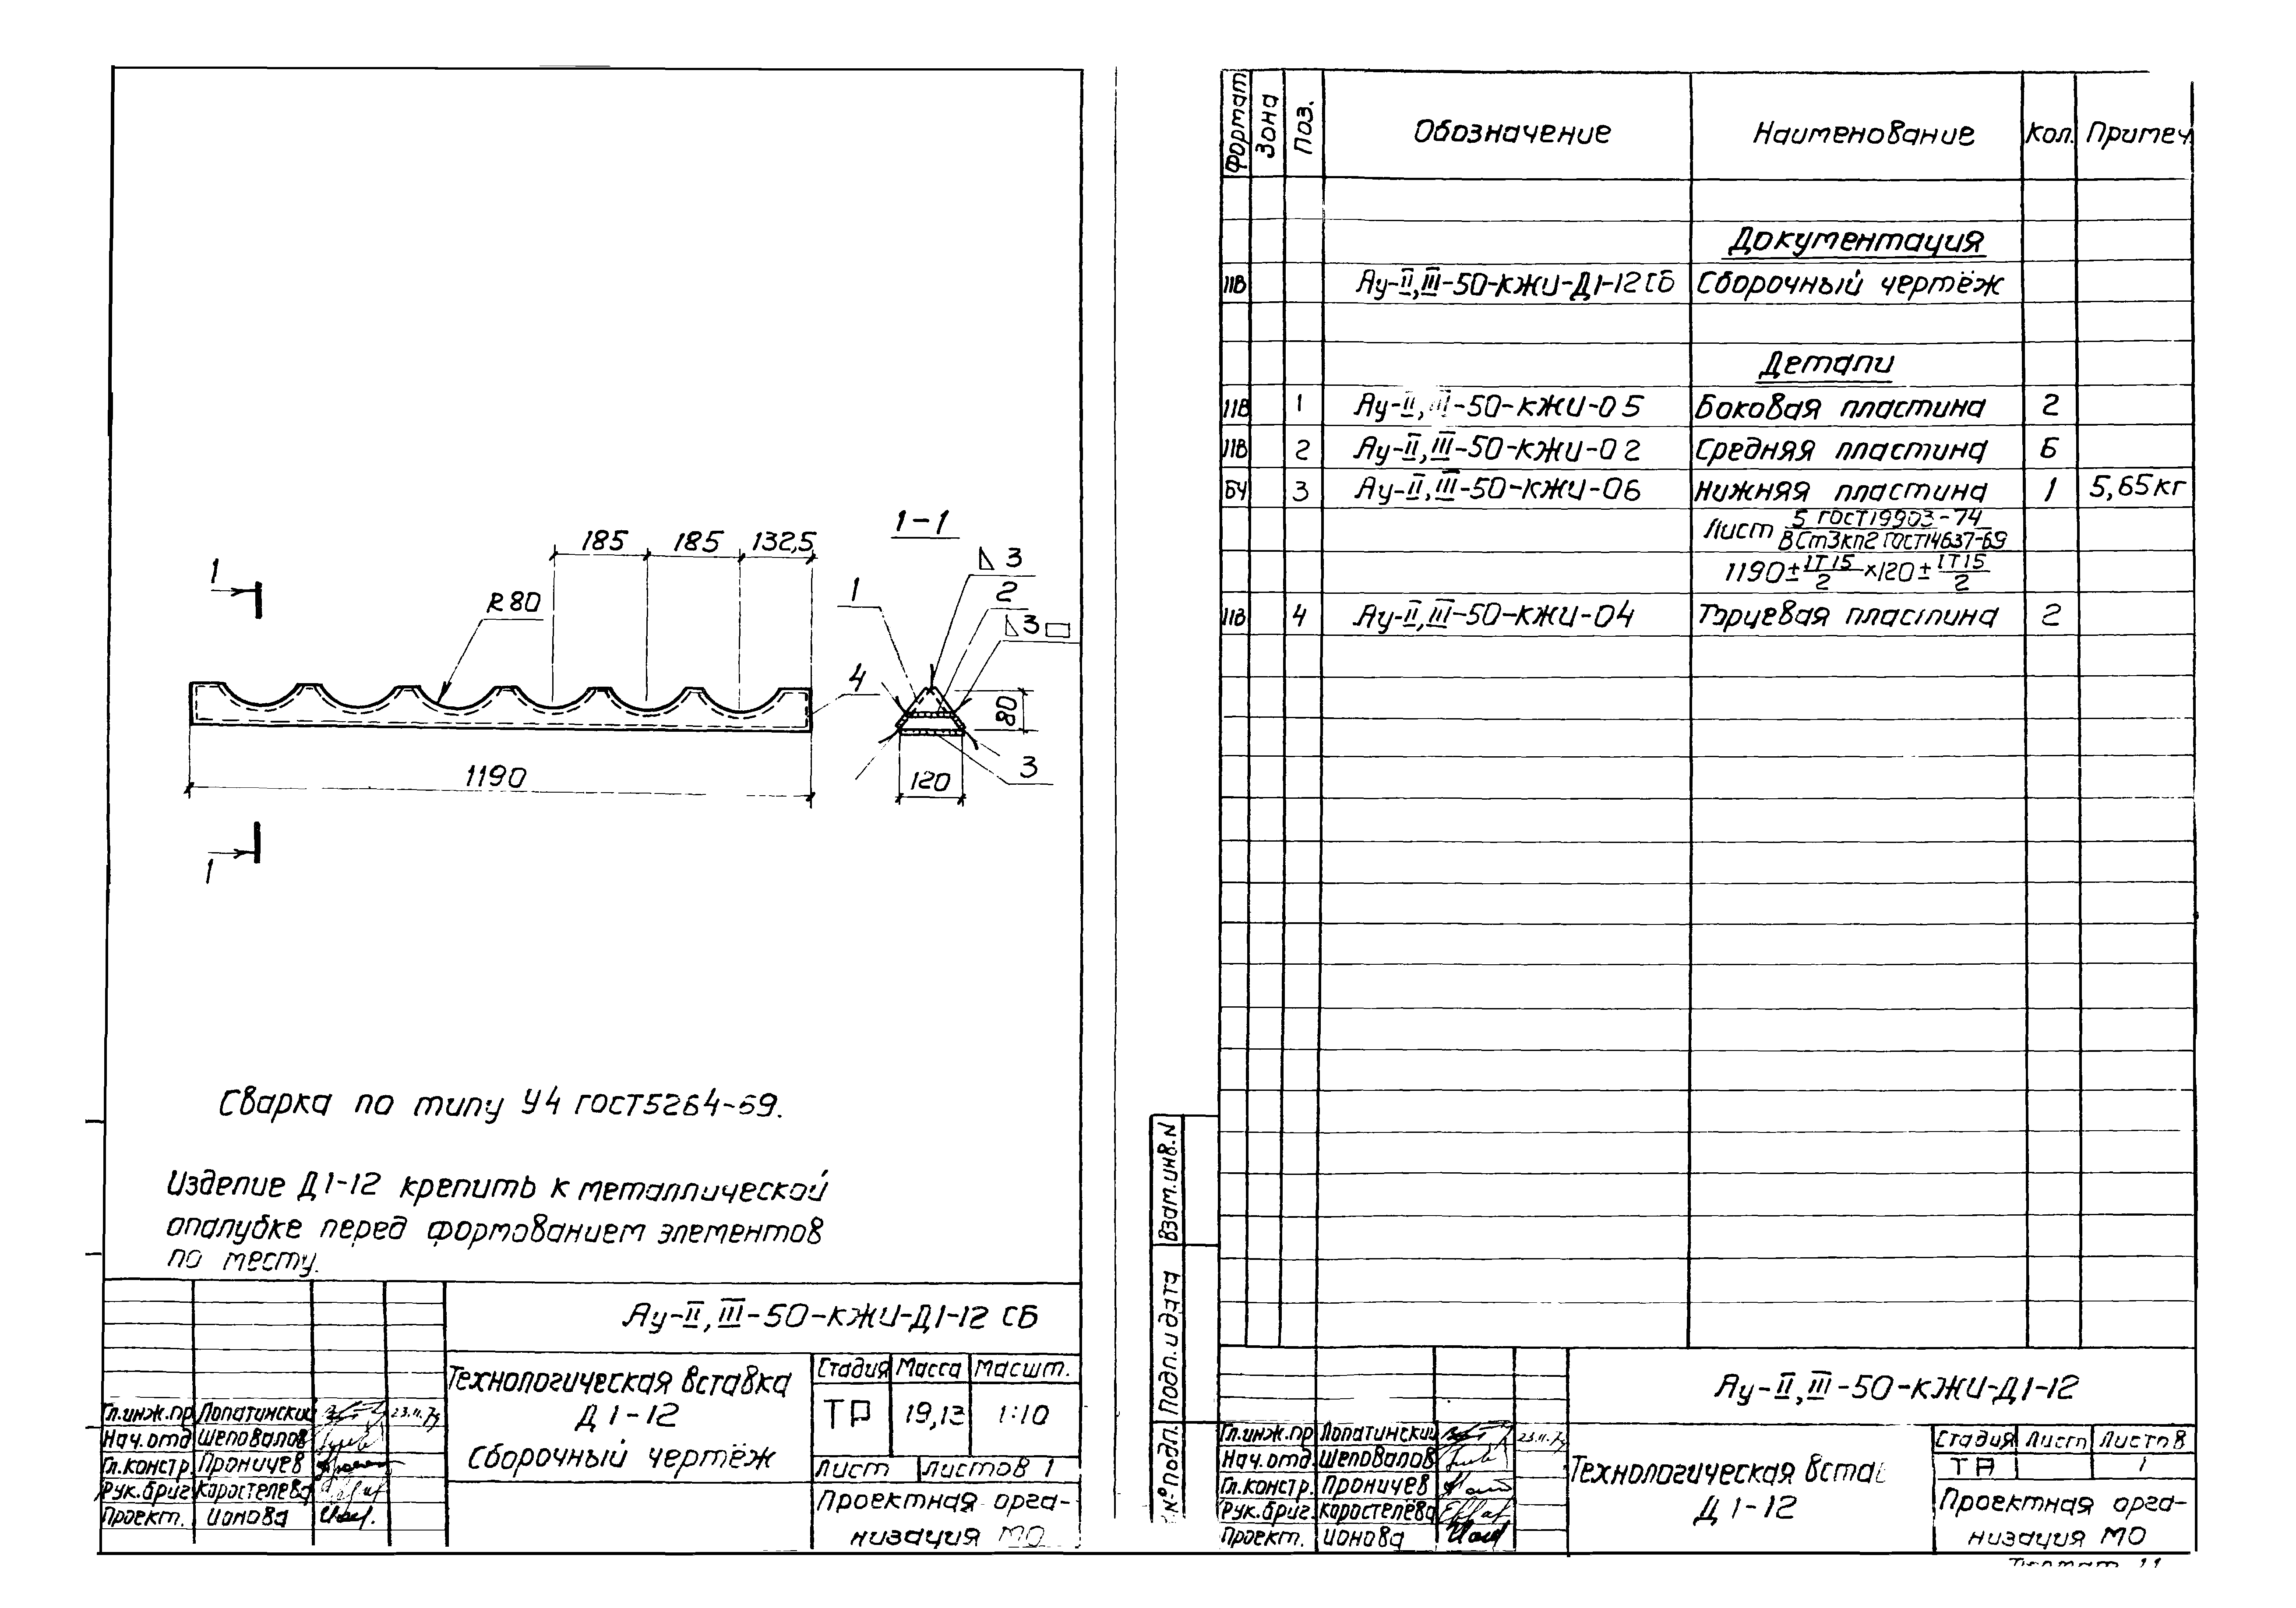 185 185 132,5
R80
1190
1
1
1-1
3
1
2
3
4
80
120
3
Сварка по типу У4 ГОСТ5264-69.
Изделие Д1-12 крепить к металлической
опалубке перед формованием элементов
по месту.
Ау-II,III-50-КЖИ-Д1-12 СБ
Технологическая вставка
Д1-12
Сборочный чертёж
Стадия Масса Масшт.
ТР 19,13 1:10
Лист Листов 1
Проектная орга-
низация МО
Гл.инж.пр Лопатинский
Нач.отд Шеповалов
Гл.констр. Проничев
Рук.бриг Каростелева
Проект. Ионова
Формат Зона Поз. Обозначение Наименование Кол. Примеч.
Документация
11В Ау-II,III-50-КЖИ-Д1-12СБ Сборочный чертёж
Детали
11В 1 Ау-II,III-50-КЖИ-05 Боковая пластина 2
11В 2 Ау-II,III-50-КЖИ-02 Средняя пластина Б
БЧ 3 Ау-II,III-50-КЖИ-06 Нижняя пластина 1 5,65кг
Лист 5 ГОСТ19903-74
ВСт3кп2 ГОСТ14637-69
1190±IT15/2×120±IT15/2
11В 4 Ау-II,III-50-КЖИ-04 Торцевая пластина 2
Взам.инв.N
Подп.и дата
№подл.
Ау-II,III-50-КЖИ-Д1-12
Технологическая встав
Д1-12
Стадия Лист Листов
ТР 1
Проектная орга-
низация МО
Гл.инж.пр Лопатинский
Нач.отд. Шеповалов
Гл.констр. Проничев
Рук.бриг. Каростелёва
Проект. Ионова
Формат 11